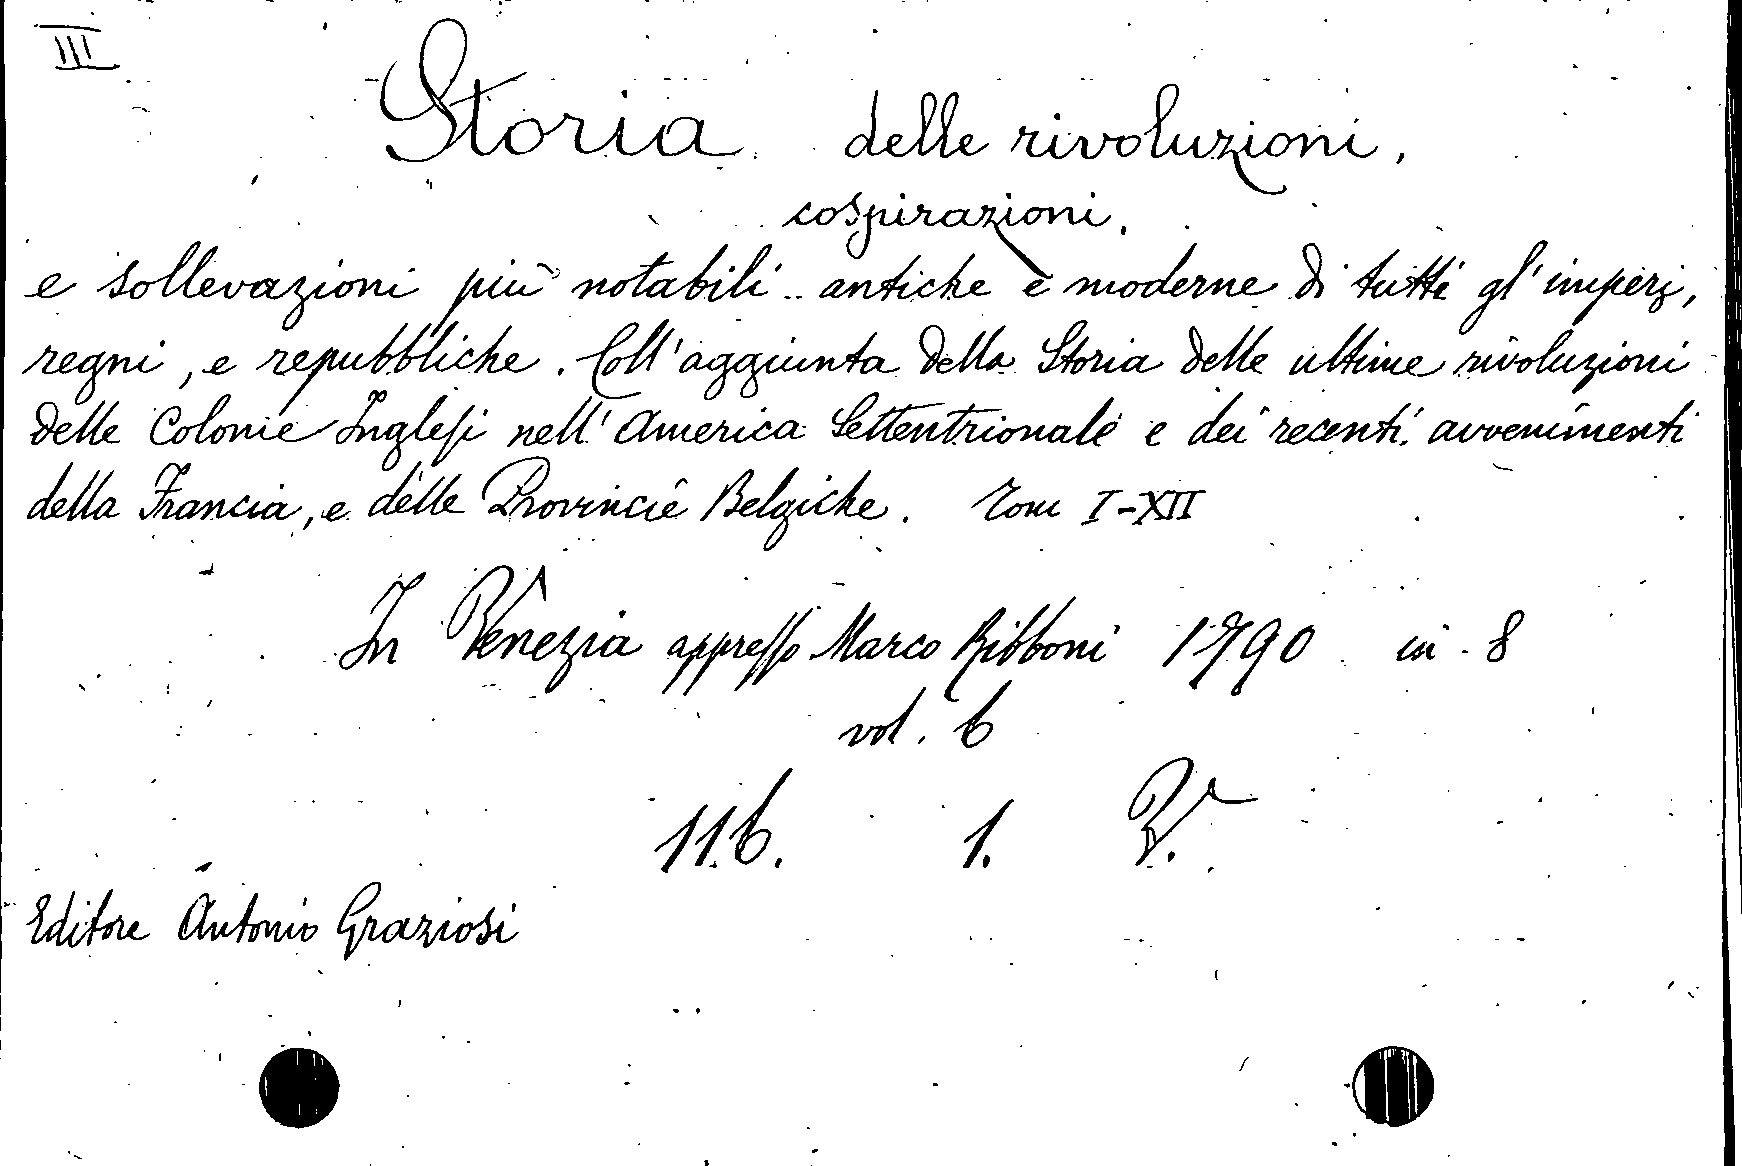 III
Storia delle rivoluzioni,
cospirazioni,
e sollevazioni più notabili antiche e moderne di tutti gl'imperj,
regni, e repubbliche. Coll'aggiunta della Storia delle ultime rivoluzioni
delle Colonie Inglesi nell'America Settentrionale e dei recenti avvenimenti
della Francia, e delle Provincie Belgiche. Tom I-XII
In Venezia appresso Marco Ribboni 1790 in 8
vol. 6
116. 1. V.
Editore Antonio Graziosi